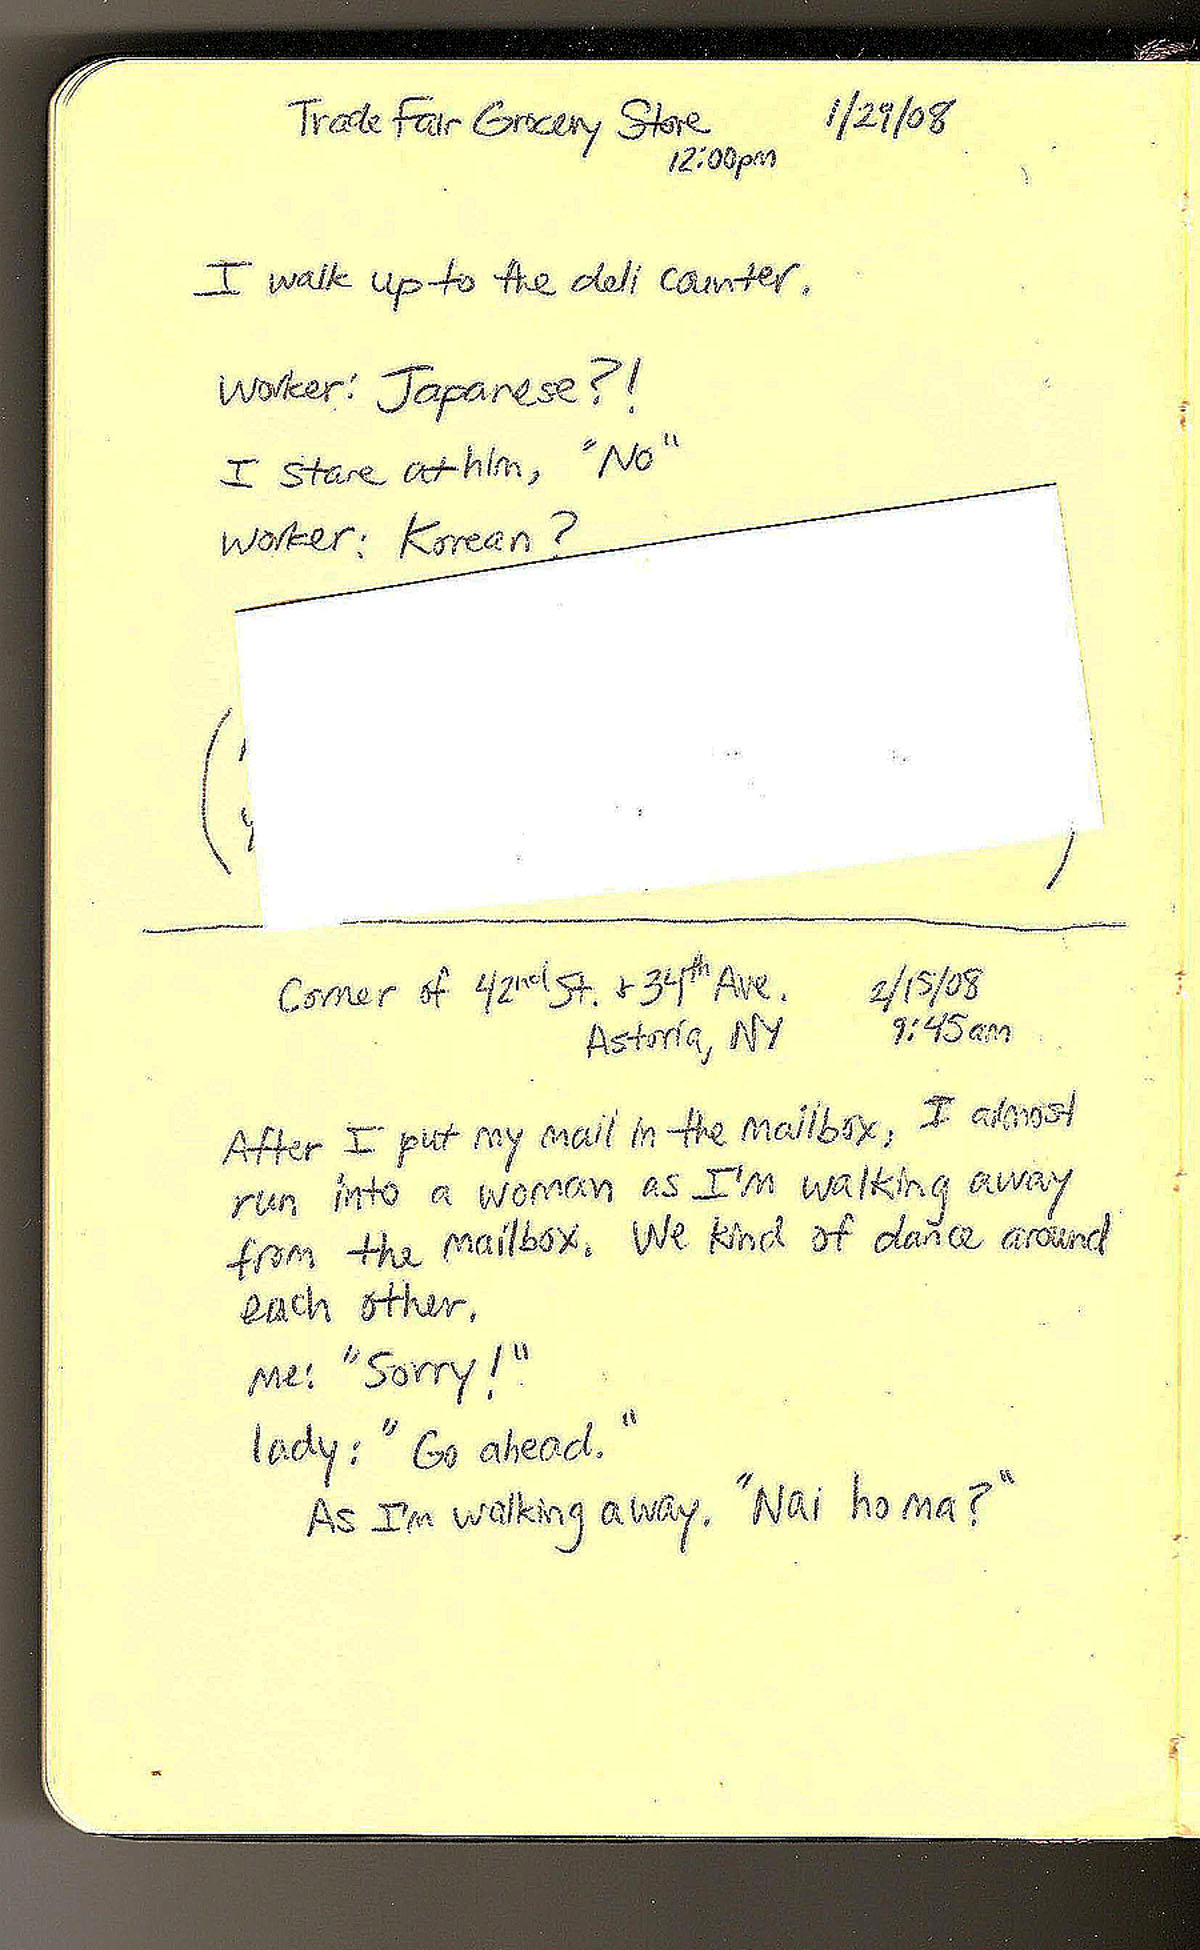 Trade Fair Grocery Store 1/29/08
12:00pm
I walk up to the deli counter.
Worker: Japanese?!
I stare at him, "No"
Worker: Korean?
(
)
Corner of 42nd St. & 34th Ave. 2/15/08
Astoria, NY 9:45am
After I put my mail in the mailbox, I almost
run into a woman as I'm walking away
from the mailbox. We kind of dance around
each other.
me: "Sorry!"
lady: "Go ahead."
As I'm walking away. "Nai ho ma?"